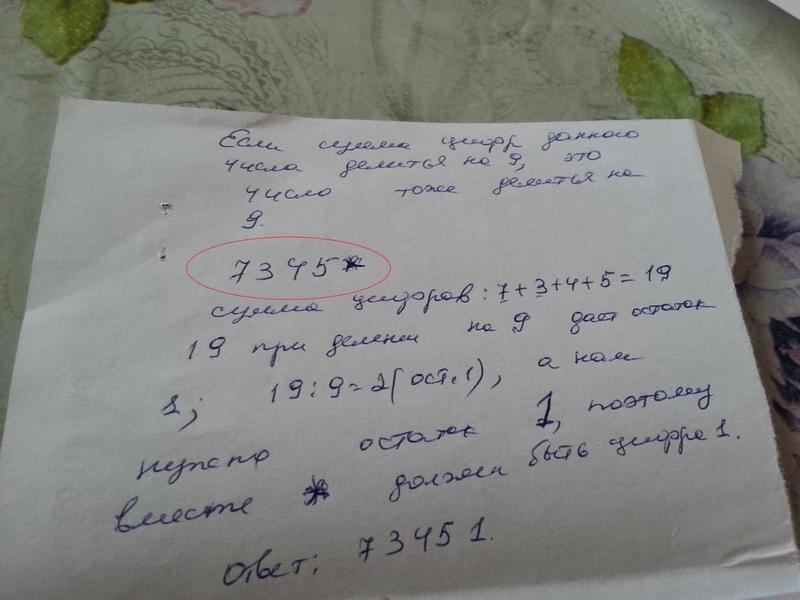 Если сумма цифр данного
числа делиться на 9, это
число тоже делиться на
9.
7345*
сумма цифоров: 7+3+4+5=19
19 при делении на 9 дает остаток
1; 19:9=2(ост.1), а нам
нужно остаток 1, поэтому
вместе * должен быть цифра 1.
Ответ: 73451.